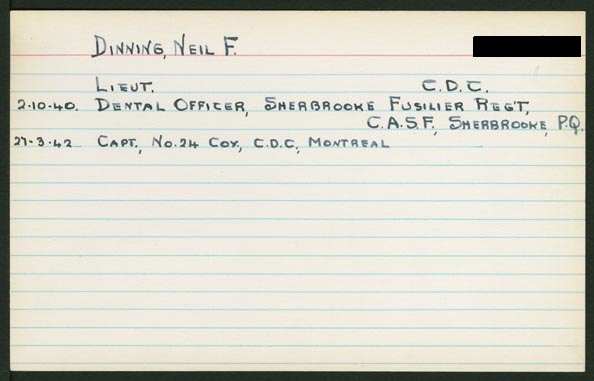 DINNING, NEIL F.
LIEUT. C.D.C.
2-10-40. DENTAL OFFICER, SHERBROOKE FUSILIER REG'T,
C.A.S.F., SHERBROOKE, P.Q.
27-3-42 CAPT., No. 24 COY., C.D.C., MONTREAL